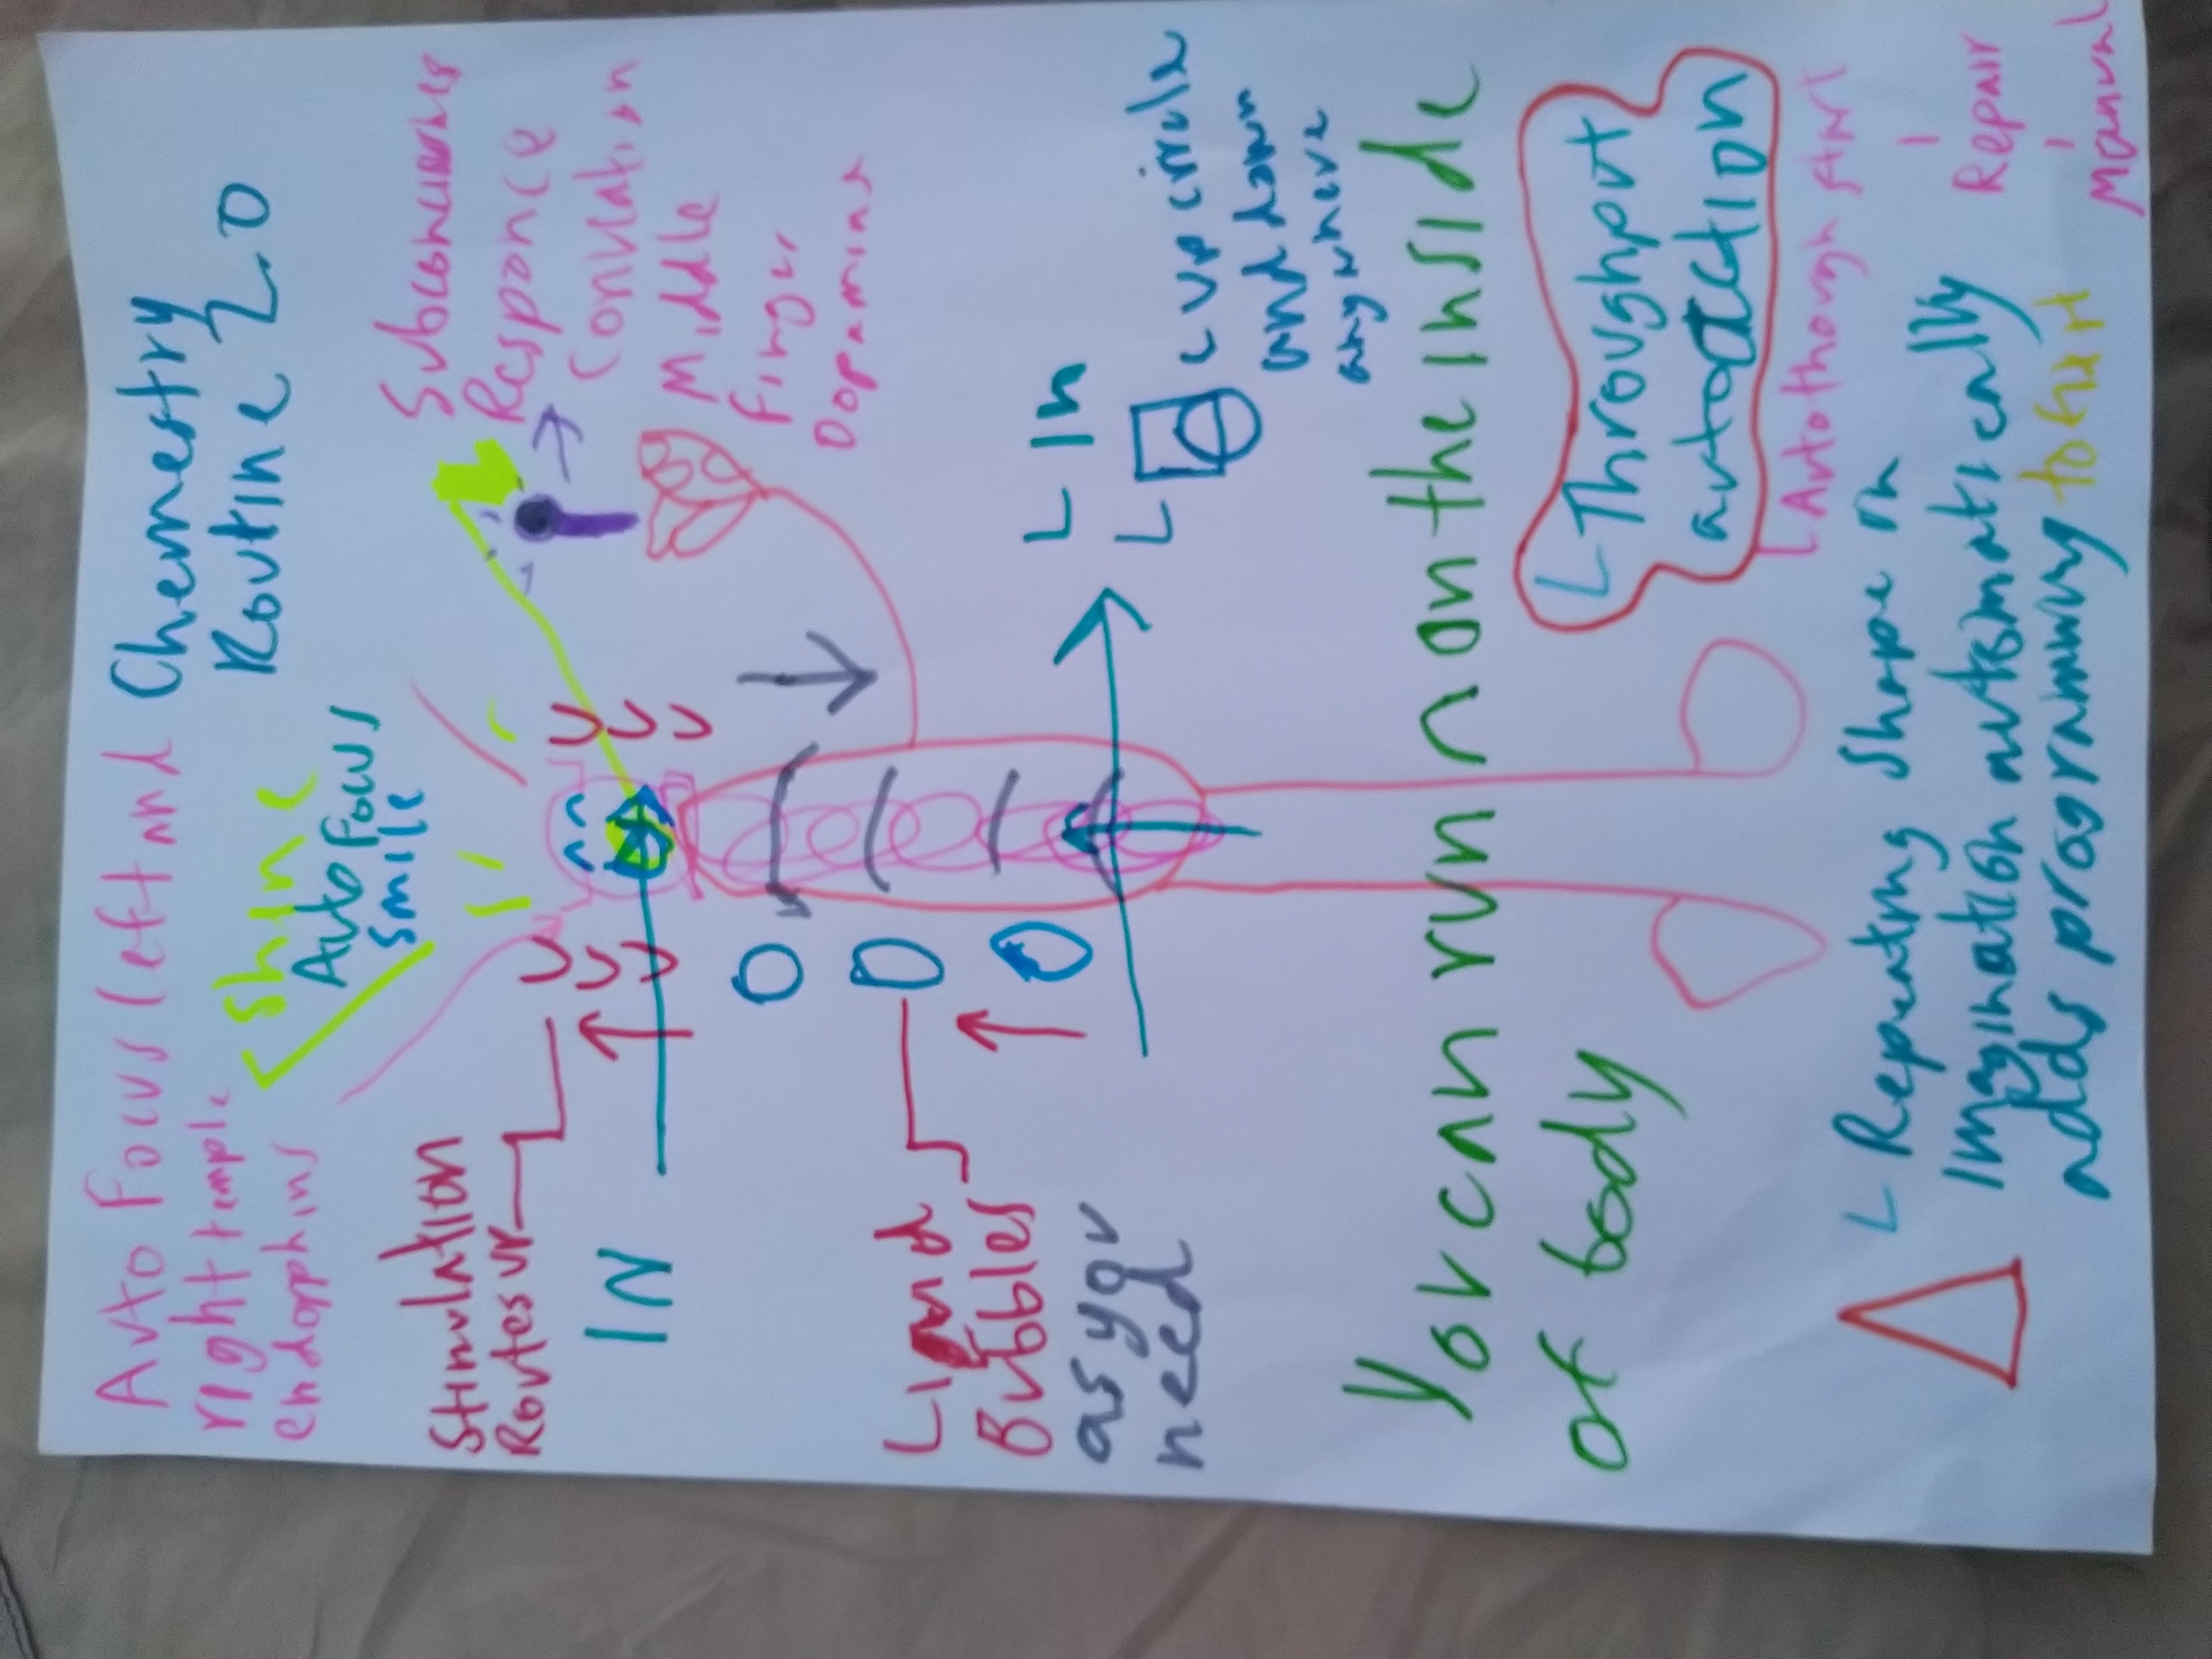 Auto Focus left and
right temple
endophins
Chemestry
Routine 2.0
Shine
Auto Focus
smile
Stimulation
Routes up
IN
Subconscious
Responce
Middle
Finger
Dopamine
Bubbles
as you
need
L In
L cup circle
and down
anywhere
You can run on the inside
of body
L Throughput
autoaction
L Autothough start
Repair
Manual
L Repeating shape in
Imagination automatically
adds programming to